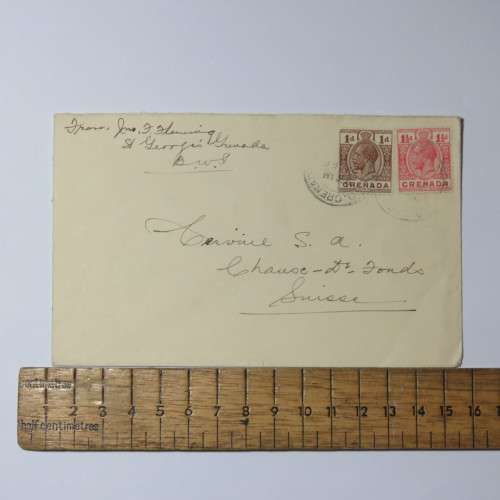 From, Jno. F. Fleming
St Georges Grenada
B.W.I
1d 1d
GRENADA
1½d 1½d
GRENADA
Cervine S. a.
Chause-De-Fonds
Suisse
1 2 3 4 5 6 7 8 9 10 11 12 13 14 15 16
half centimetres